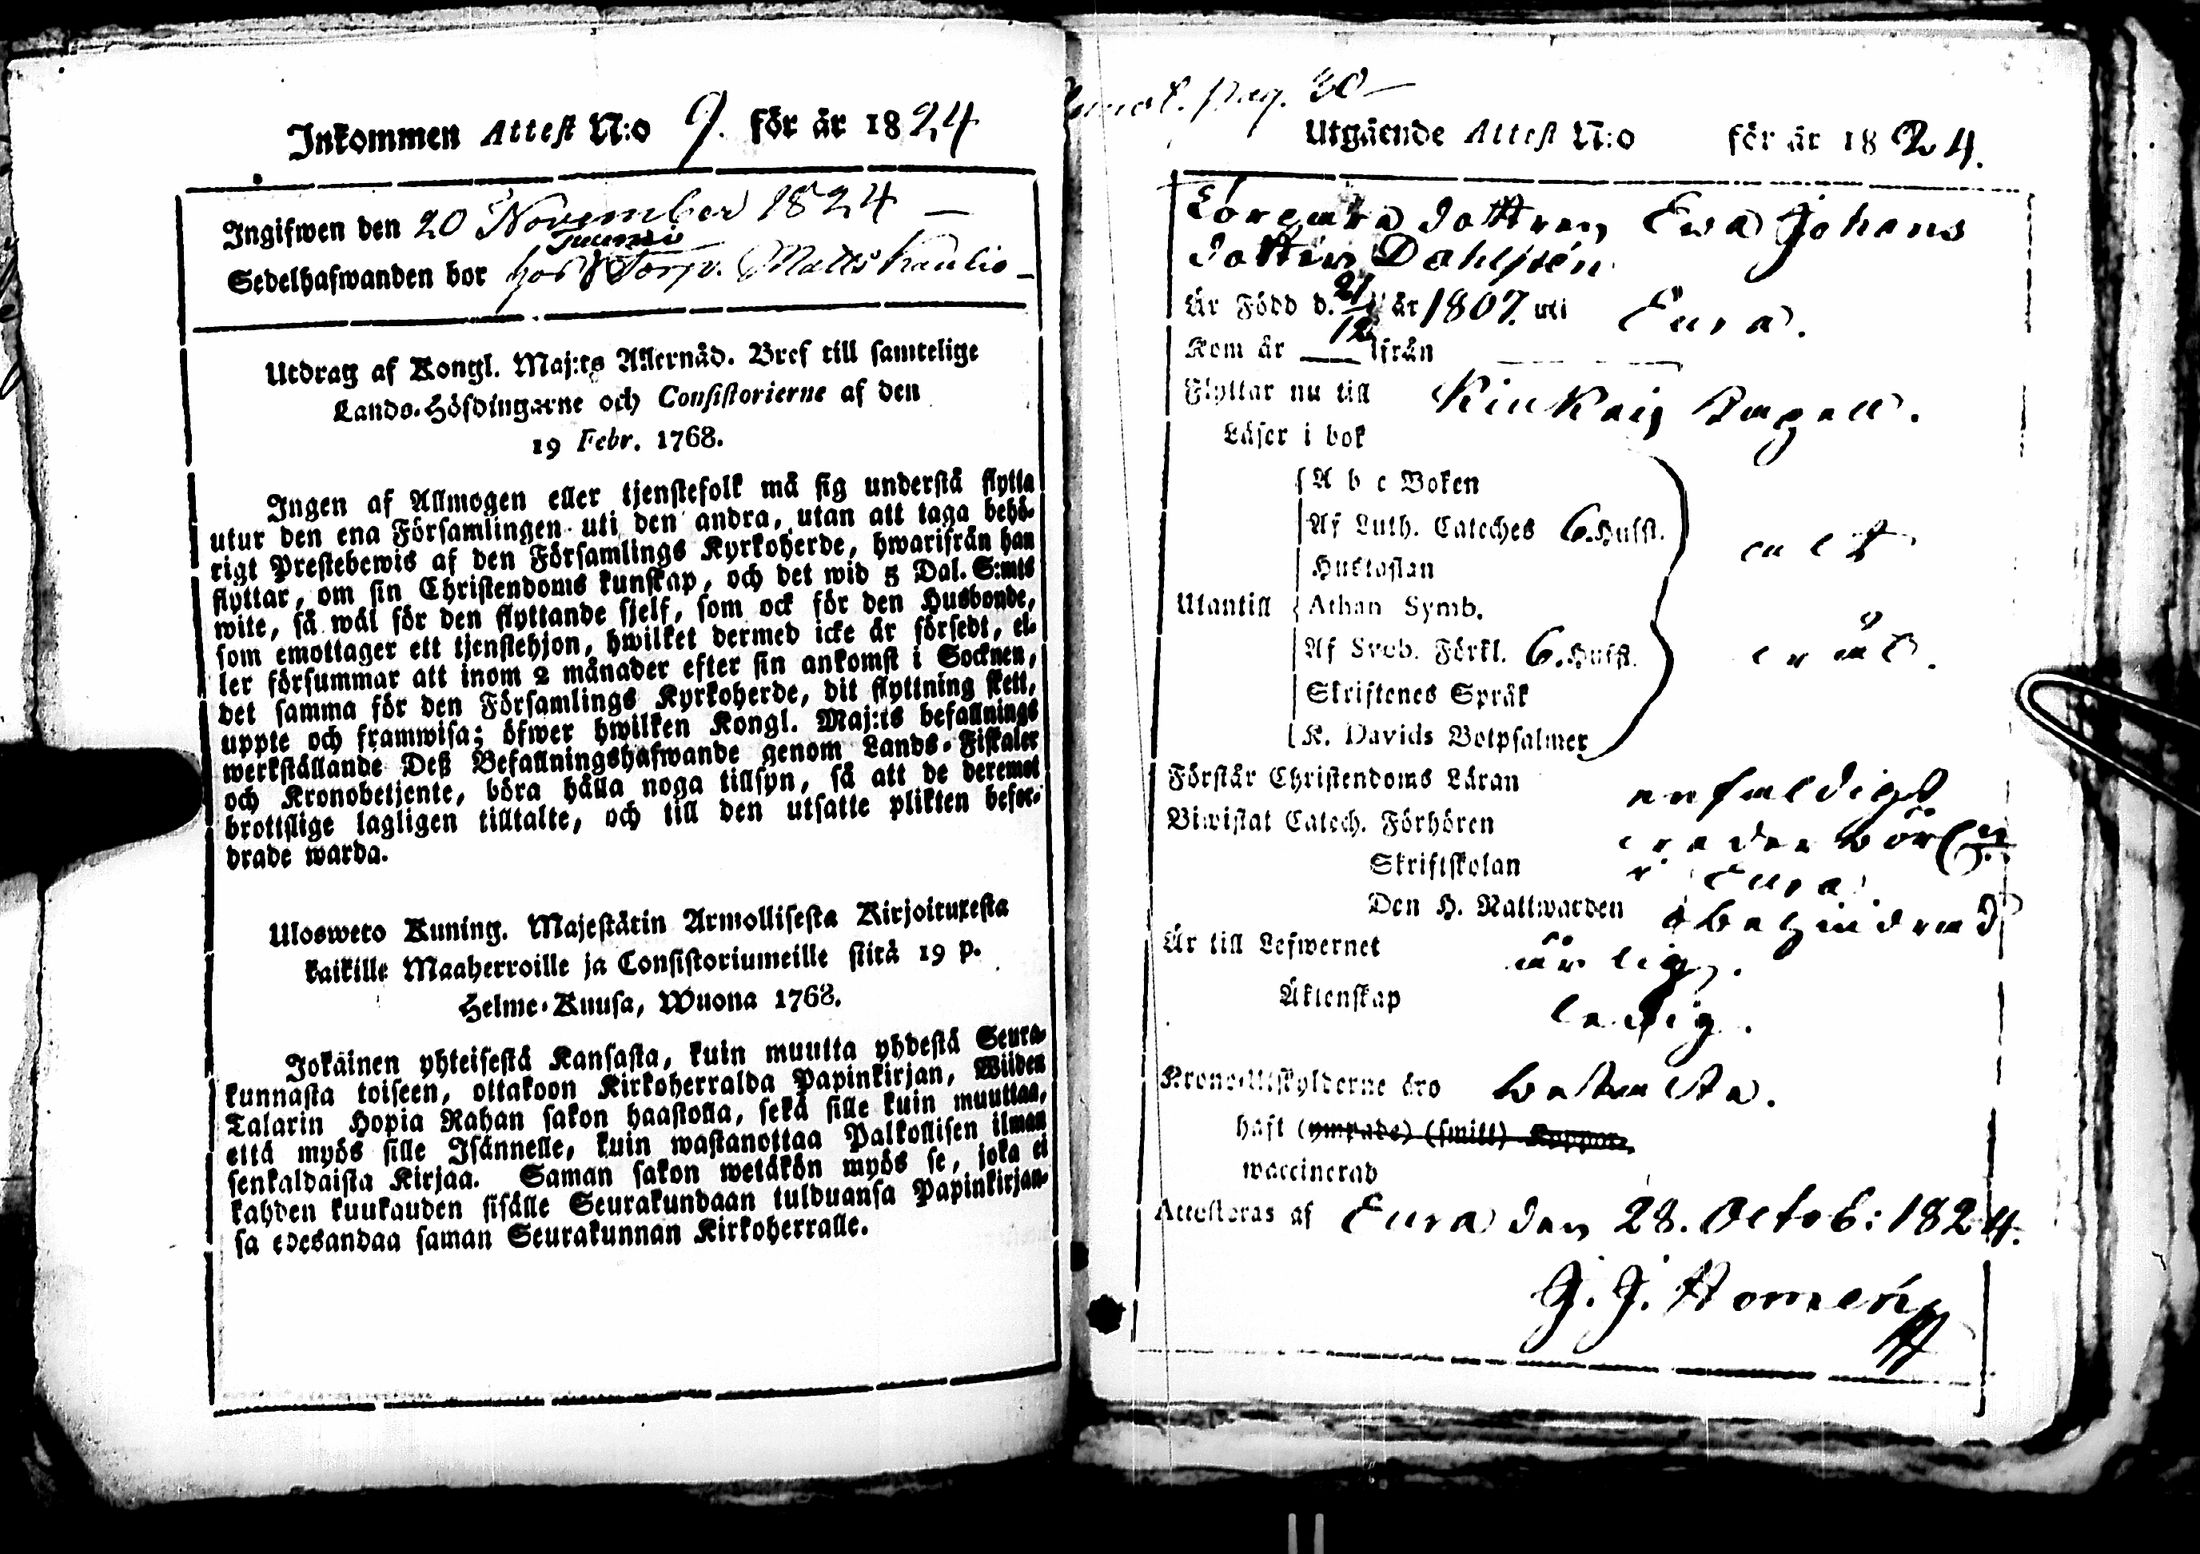 Inkommen Attest N:o 9. för år 1824
Ingifwen den 20 November 1824
Sedelhafwanden bor hos Torp. Matts
Utdrag af Kongl. Maj:ts Allernåd. Bref till samtelige
Lands-Höfdingarne och Consistorierne af den
19 Febr. 1768.
Ingen af Allmogen eller tjenstefolk må sig understå flytta
utur den ena Församlingen uti den andra, utan att taga behö-
rigt Prestebewis af den Församlings Kyrkoherde, hwarifrån han
flyttar, om sin Christendoms kunskap, och det wid 5 Dal. S:mts
wite, så wäl för den flyttande sjelf, som ock för den Husbonde,
som emottager ett tjenstehjon, hwilket dermed icke är försedt, el-
ler försummar att inom 2 månader efter sin ankomst i Socknen,
det samma för den Församlings Kyrkoherde, dit flyttning skett,
uppte och framwisa; öfwer hwilken Kongl. Maj:ts befallnings
werkställande Deß Befallningshafwande genom Lands-Fiskaler
och Kronobetjente, böra hålla noga tillsyn, så att de deremot
brottslige lagligen tilltalte, och till den utsatte plikten befor-
drade warda.
Ulosweto Kuning. Majestätin Armollisesta Kirjoituxesta
kaikille Maaherroille ja Consistoriumeille siitä 19 p.
Helme-Kuusa, Wuona 1768.
Jokainen yhteisestä Kansasta, kuin muutta yhdestä Seura-
kunnasta toiseen, ottakoon Kirkoherralda Papinkirjan, Wiiden
Talarin Hopia Rahan sakon haastolla, sekä sille kuin muuttaa,
että myös sille Isännelle, kuin wastanottaa Palkollisen ilman
senkaldaista Kirjaa. Saman sakon wetäkön myös se, joka ei
kahden kuukauden sisälle Seurakundaan tulduansa Papinkirjan-
sa edesandaa saman Seurakunnan Kirkoherralle.
pag. 30
Utgående Attest N:o för år 1824.
dottren Eva Johans
dotter Dahlsten
Är Född d. 21/12 år 1807. uti Eura.
Kom år — ifrån —
Flyttar nu till Kiukais Capell.
Läser i bok
A b c Boken
Af Luth. Cateches 6. Hufst.
Hustaflan
Utantill Athan Symb.
Af Sveb. Förkl. 6. Hufst.
Skriftenes Språk
K. Davids Botpsalmer
Förstår Christendoms Läran enfaldigt
Biwistat Catech. Förhören
Skriftskolan i Eura
Den H. Nattwarden obehindrad
Är till Lefwernet ärlig.
Äktenskap ledig.
Krono-Utskylderne äro betalta.
haft (ympade) (smitt) Koppor.
waccinerad
Attesteras af Eura den 28. Octob: 1824.
J. J. Homén